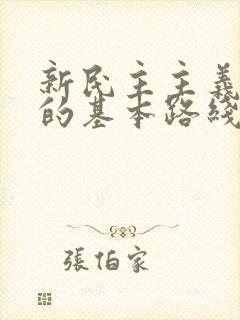 新民主主義
的基本路綫
張伯家